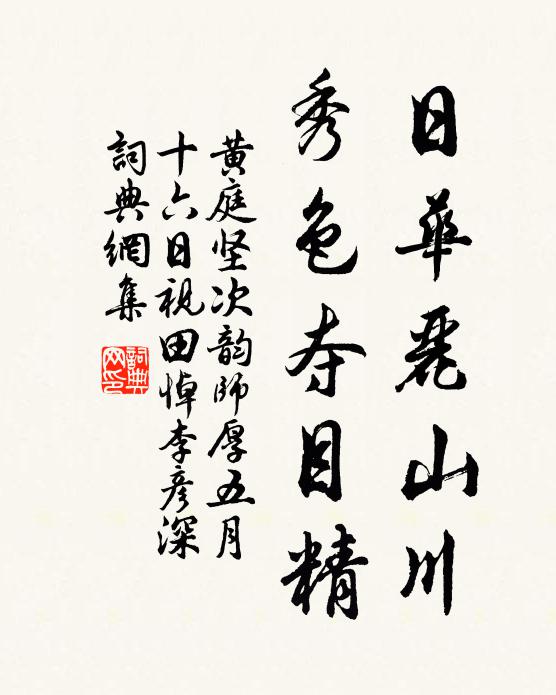 日華麗山川
秀色夺目精
黄庭坚次韵師厚五月
十六日視田悼李彦深
詞典網集
詞典网印